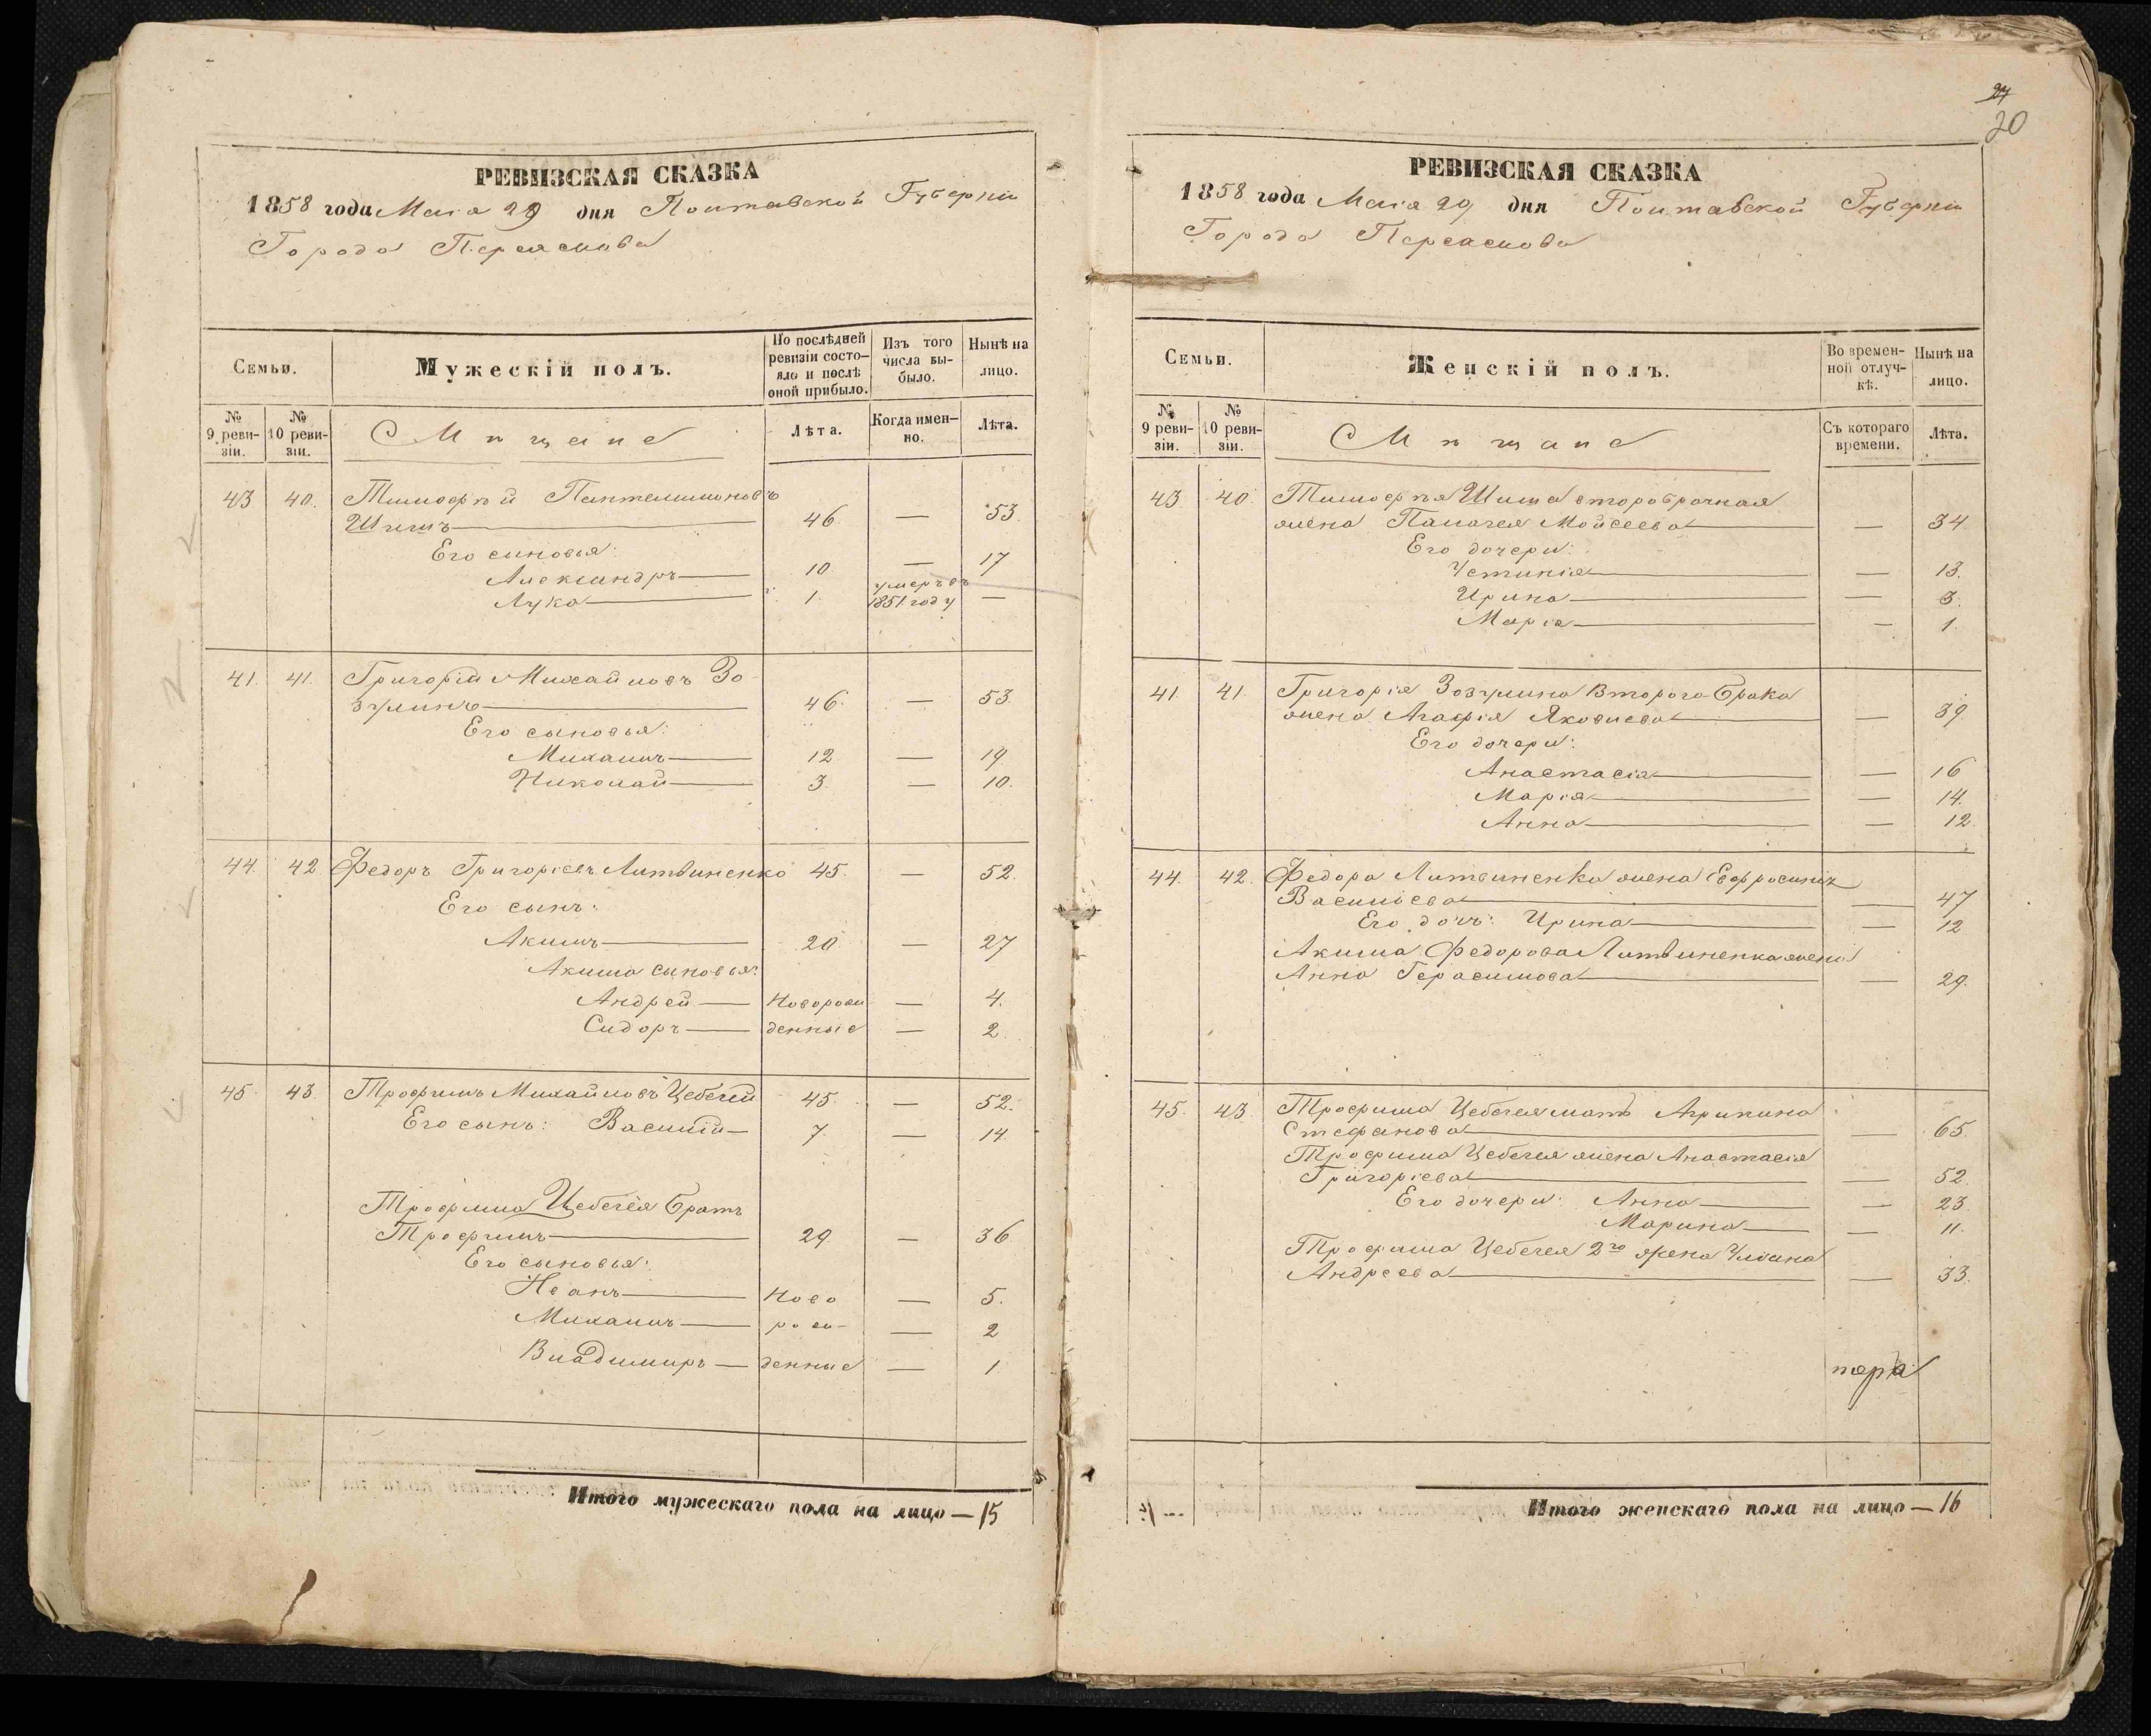 РЕВИЗСКАЯ СКАЗКА
1858 года Мая 29 дня Полтавской Губернии
Города Переяслова
Семьи.
Мужескій полъ.
По послѣдней ревизіи состо-
яло и послѣ оной прибыло.
Изъ того числа вы-
было.
Нынѣ на лицо.
№ 9 реви-
зіи.
№ 10 реви-
зіи.
Мѣщане
Лѣта.
Когда имен-
но.
Лѣта.
43 40. Тимофѣй Пантелимоновъ
Шишъ 46 — 53
Его сыновья:
Александръ 10 — 17
Лука 1. умеръ въ 1851 году —
41. 41. Григорій Михайловъ Зо-
зулинъ 46. — 53.
Его сыновья:
Михаилъ 12 — 19.
Николай 3. — 10.
44. 42 Федоръ Григорьевъ Литвиненко 45. — 52.
Его сынъ:
Акимъ 20 — 27
Акима сыновья:
Андрей Новорож- — 4.
Сидоръ денные — 2
45. 43 Трофимъ Михайловъ Цебегей 45. — 52.
Его сынъ: Василій 7 — 14.
Трофима Цебегея братъ
Трофимъ 29 — 36
Его сыновья:
Иванъ Ново — 5.
Михаилъ рож- — 2
Владимиръ денные — 1.
Итого мужескаго пола на лицо — 15
20
РЕВИЗСКАЯ СКАЗКА
1858 года Мая 29 дня Полтавской Губернии
Города Переяслова
Семьи.
Женскій полъ.
Во времен-
ной отлуч-
кѣ.
Нынѣ на лицо.
№ 9 реви-
зіи.
№ 10 реви-
зіи.
Мѣщане
Съ котораго времени.
Лѣта.
43. 40 Тимофѣя Шиша второбрачная
жена Палагея Мойсеева — 34
Его дочери:
Устинія — 13.
Ирина — 3.
Марія — 1.
41. 41. Григорія Зозулина втораго брака
жена Агафія Яковлева — 39
Его дочери:
Анастасія — 16
Марія — 14.
Анна — 12
44. 42. Федора Литвиненка жена Евфросинія
Васильева — 47
Его дочь: Ирина — 12
Акима Федорова Литвиненка жена
Анна Герасимова — 29.
45. 43. Трофима Цебегея мать Агрипина
Стефанова — 65
Трофима Цебегея жена Анастасія
Григорьева — 52
Его дочери: Анна — 23
Марина — 11.
Трофима Цебегея 2го жена Уліана
Андреева — 33.
Итого женскаго пола на лицо — 16